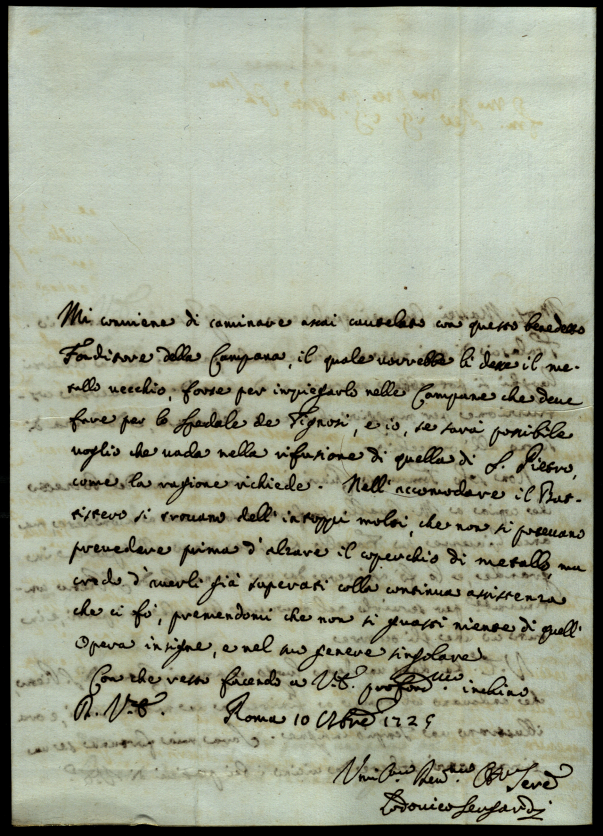 Mi conviene di caminare assai cautelato con questo benedetto
Fonditore della Campana, il quale vorrebbe li dessi il me-
tallo vecchio, forse per impiegarlo nelle Campane che deve
fare per lo Spedale de Tignosi, e io, se sarà possibile
voglio che vada nella rifusione di quella di S. Pietro,
come la ragione richiede. Nell' accomodare il Bat-
tistero si trovano dell' intoppi molti, che non si potevano
prevedere prima d'alzare il coperchio di metallo, ma
credo d'averli già superati colla continua assistenza
che ci fò, premendomi che non si guasti niente di quell'
Opera insigne, e nel suo genere singolare
Con che resto facendo a V.S. profond.mo inchino
Roma 10
Lodovico Sergardi